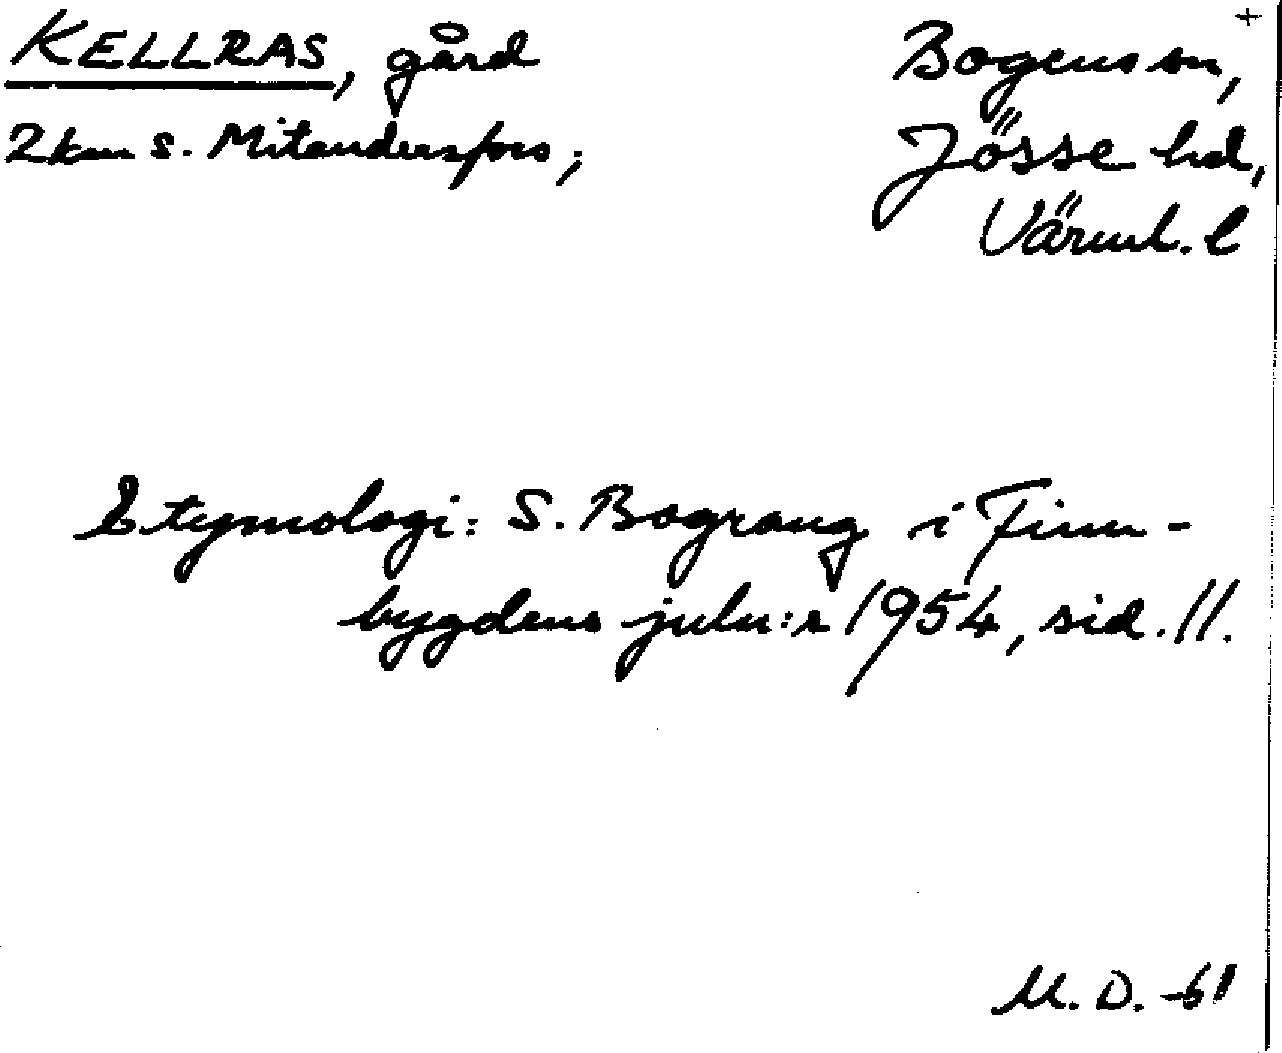 KELLRAS, gård
2 km s. Mitandersfors;
+
Bogens sn,
Jösse hd,
Värml. l
Etymologi: S. Bograng i Finn-
bygdens julnr:r 1954, sid. 11.
M. D. -61